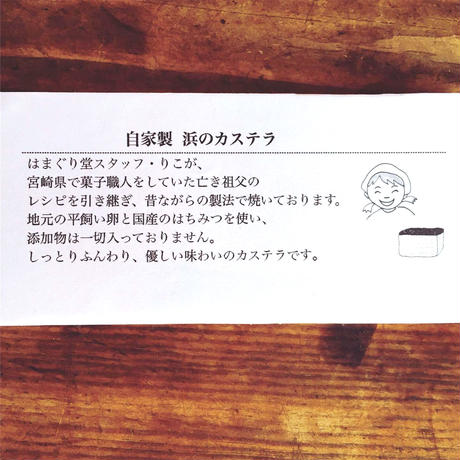 自家製 浜のカステラ
はまぐり堂スタッフ・りこが、
宮崎県で菓子職人をしていた亡き祖父の
レシピを引き継ぎ、昔ながらの製法で焼いております。
地元の平飼い卵と国産のはちみつを使い、
添加物は一切入っておりません。
しっとりふんわり、優しい味わいのカステラです。